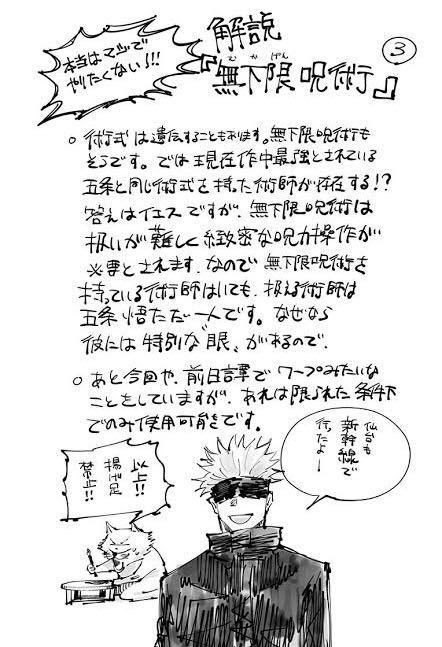 ③
解説
『無下限呪術』
むかげん
本当はマジで
やりたくない!!!
○ 術式は遺伝することもあります。無下限呪術も
そうです。では現在作中最強とされている
五条と同じ術式を持った術師が存在する!?
答えはイエスですが、無下限呪術は
扱いが難しく緻密な呪力操作が
必要とされます。なので無下限呪術を
持っている術師はいても、扱える術師は
五条悟ただ一人です。なぜなら
彼には“特別な眼”があるので。
○ あと今回や、前日譚でワープみたいな
ことをしていますが、あれは限られた条件下
でのみ使用可能です。
仙台も
新幹線で
行ったよー
以上!!
揚げ足
禁止!!